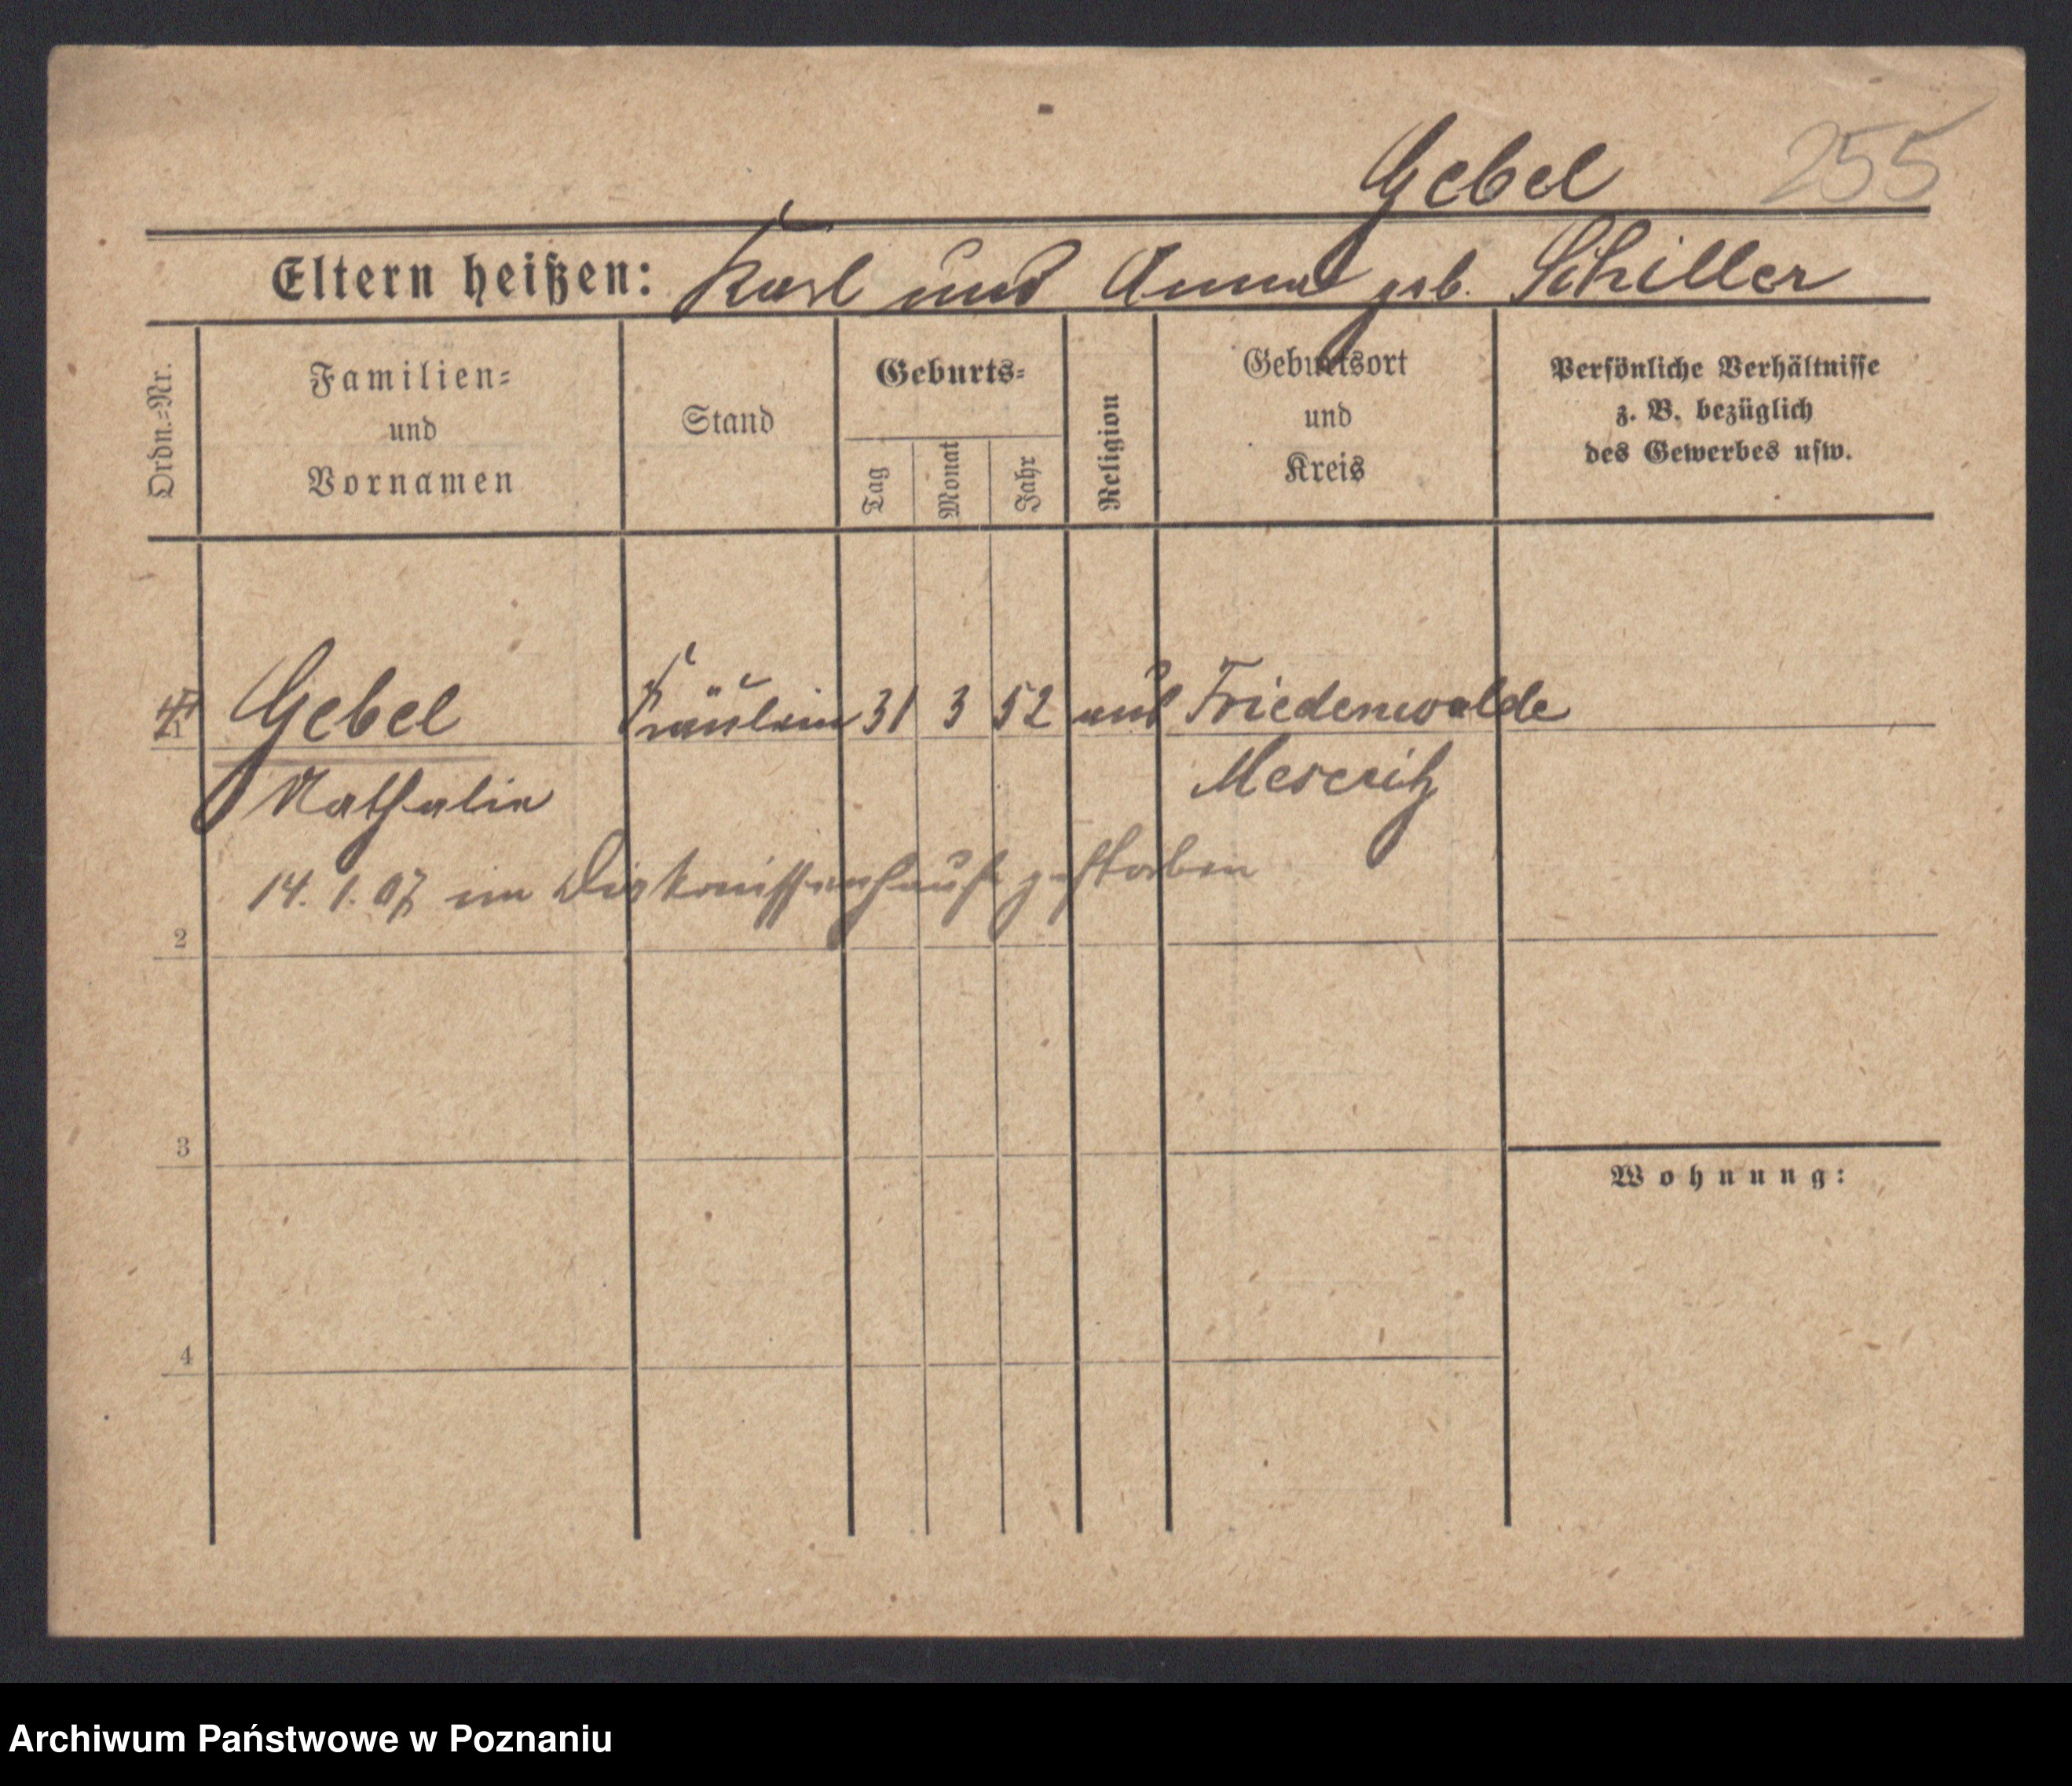 Gebel 255
Eltern heißen: Karl und Anna geb. Schiller
Ordn.=Nr.
Familien=
und
Vornamen
Stand
Geburts=
Tag
Monat
Jahr
Religion
Geburtsort
und
Kreis
Persönliche Verhältnisse
z. B. bezüglich
des Gewerbes usw.
1 Gebel Fräulein 31 3 52 Friedenwalde
Nathalie Meseritz
14. 1. 07 im Diakonissenhause gestorben
2
3
Wohnung:
4
Archiwum Państwowe w Poznaniu